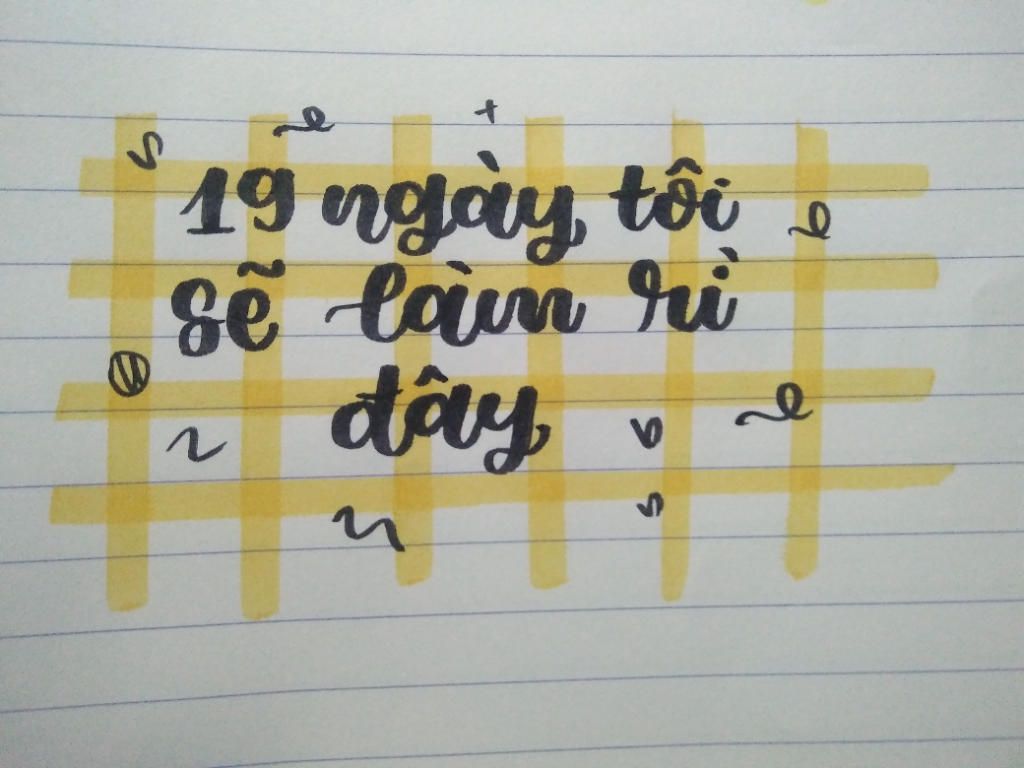 19 ngày tôi
sẽ làm rì
đây